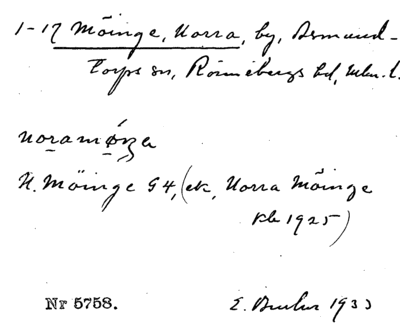 1-17 Möinge, Norra, by, Asmund-
torps sn, Rönnebergs hd, Mlm. l.
noramöɲa
N. Möinge G4, (ek, Norra Möinge
Kb 1925)
Nr 5758.
1933